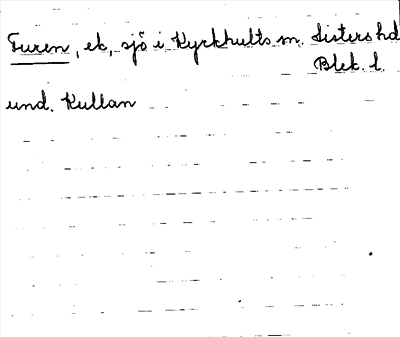 Furen, ek, sjö i Kyrkhults sn. Listers hd
Blek. l.
und. Kullan